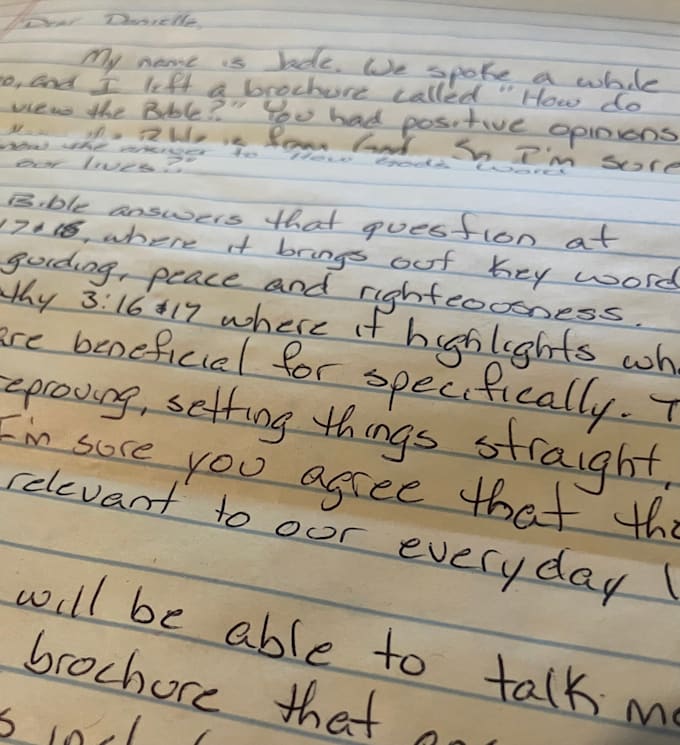 Dear Danielle,
My name is Jade. We spoke a while
o, and I left a brochure called "How do
view the Bible?" You had positive opinions
Bible is from God. So I'm sure
now the answer to "How God's word
our lives?"
Bible answers that question at
17+18, where it brings out key word
guiding, peace and righteousness.
thy 3:16 &17 where it highlights wh
are beneficial for specifically. T
reproving, setting things straight,
I'm sure you agree that the
relevant to our everyday l
will be able to talk mo
brochure that